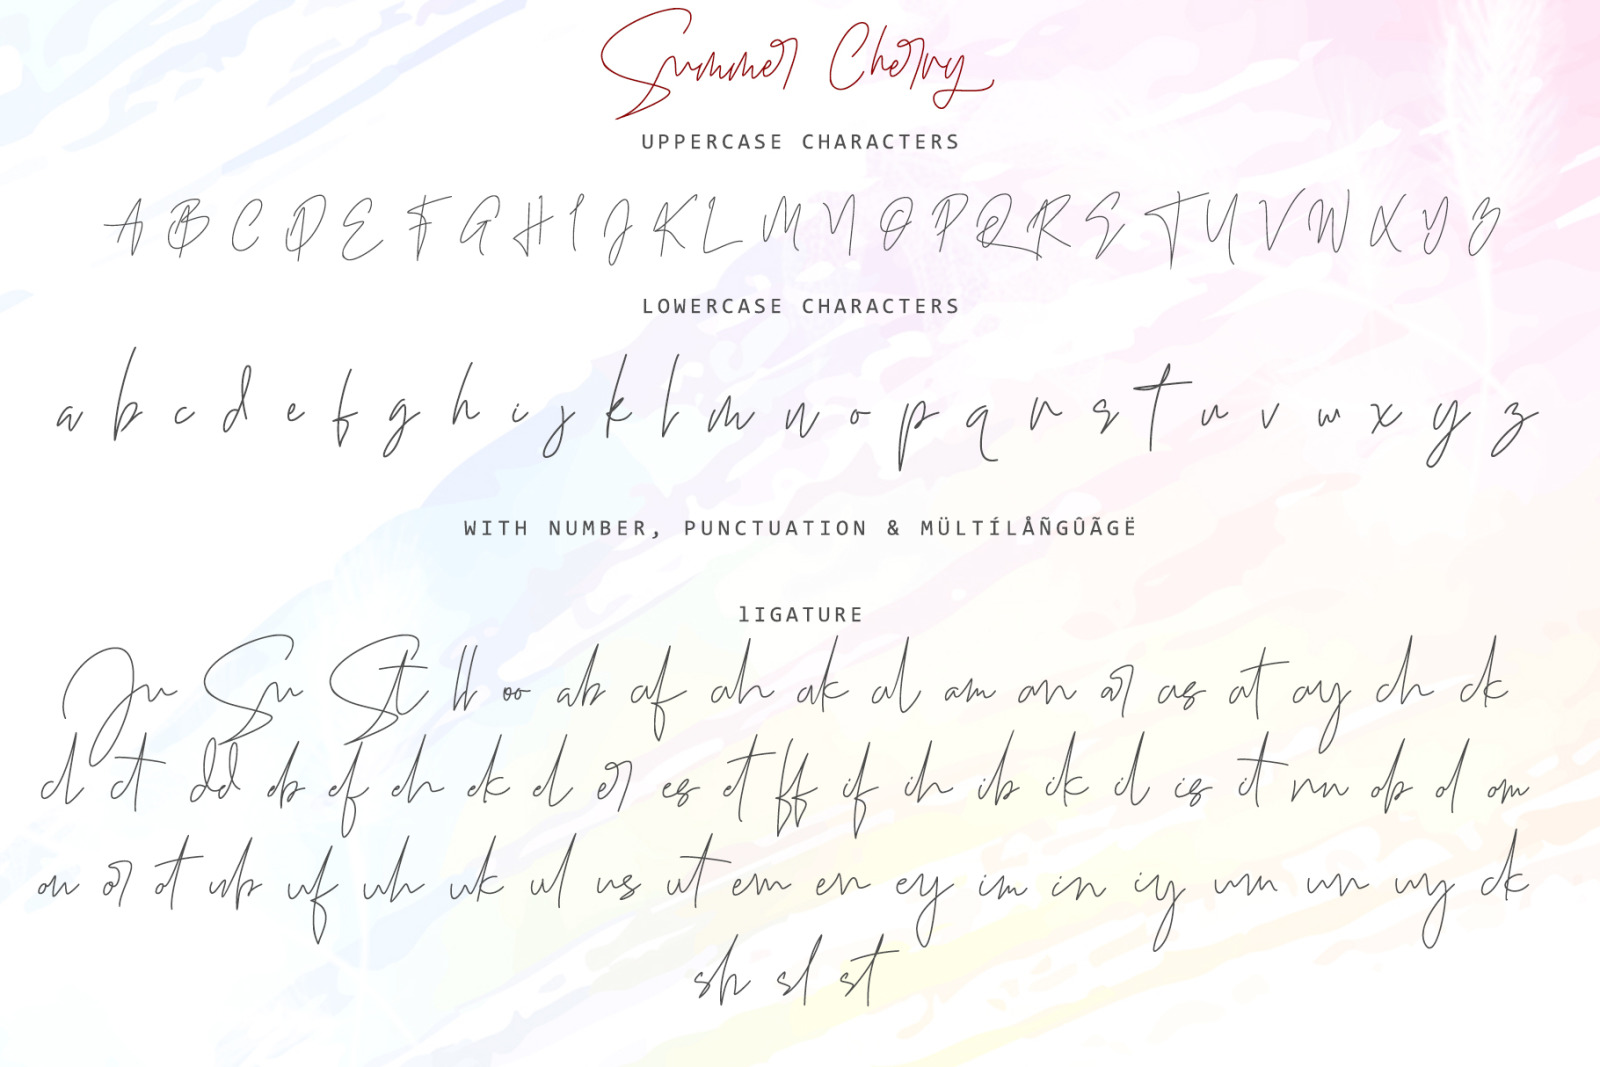 Summer Cherry
UPPERCASE CHARACTERS
A B C D E F G H I J K L M N O P Q R S T U V W X Y Z
LOWERCASE CHARACTERS
a b c d e f g h i j k l m n o p q r s t u v w x y z
WITH NUMBER, PUNCTUATION & MÜLTÍLÅÑGÛÃGË
lIGATURE
Ju Su St ll oo ab af ah ak al am an ar as at ay ch ck
cl ct dd eb ef eh ek el er es et ff if ih ib ik il is it rn ob ol om
on or ot ub uf uh uk ul us ut em en ey im in iy um un uy ck
sh sl st